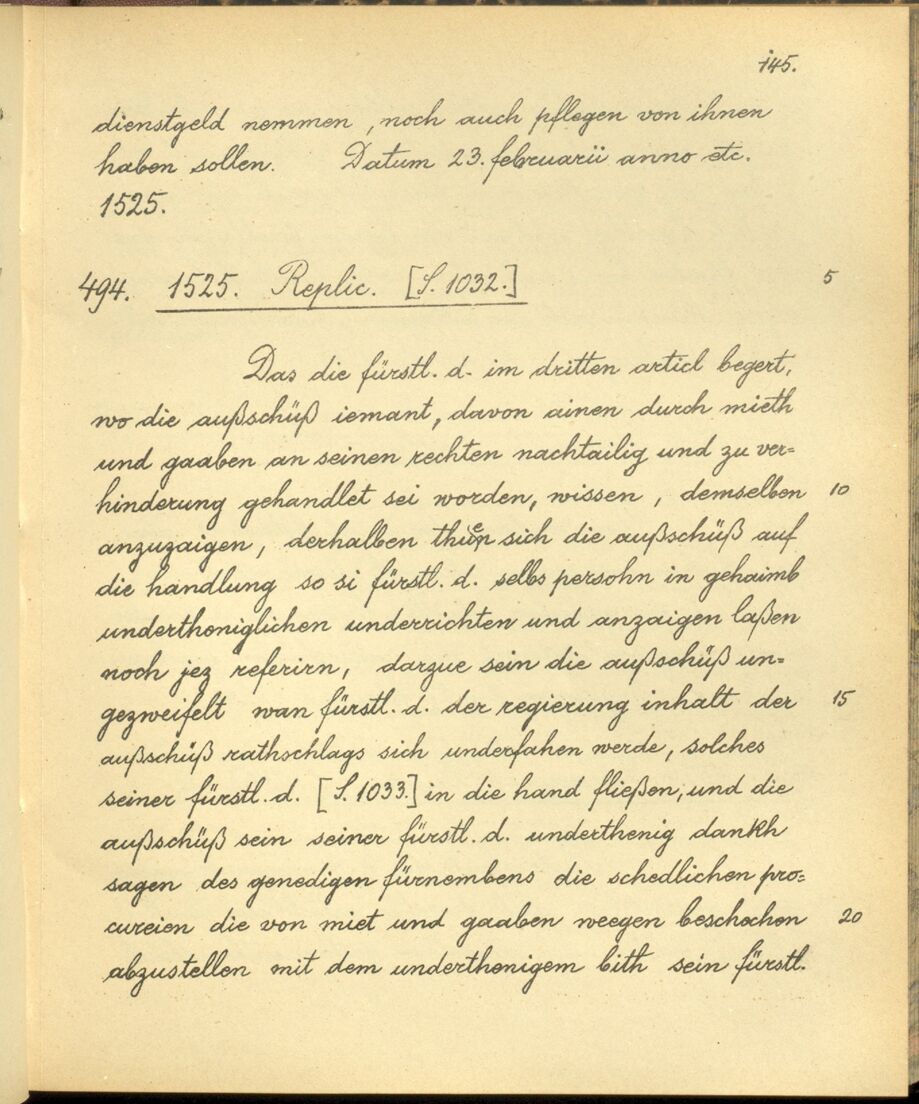 145.
dienstgeld nemmen, noch auch pflegen von ihnen
haben sollen. Datum 23. februarii anno etc.
1525.
494. 1525. Replic. [S. 1032.] 5
Das die fürstl. d. im dritten articl begert,
wo die außschüß iemant, davon ainen durch mieth
und gaaben an seinen rechten nachtailig und zu ver=
hinderung gehandlet sei worden, wissen, demselben 10
anzuzaigen, derhalben thuen sich die außschüß auf
die handlung so si fürstl. d. selbs persohn in gehaimb
undertheniglichen underrichten und anzaigen laßen
noch jez referirn, darzue sein die außschüß un=
gezweifelt wan fürstl. d. der regierung inhalt der 15
außschüß rathschlags sich underfahen werde, solches
seiner fürstl. d. [S. 1033.] in die hand fließen, und die
außschüß sein seiner fürstl. d. underthenig dankh
sagen des genedigen fürnembens die schedlichen pro=
cureien die von miet und gaaben weegen beschechen 20
abzustellen mit dem underthenigem bith sein fürstl.